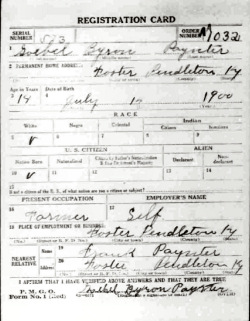 REGISTRATION CARD
SERIAL NUMBER 523 ORDER NUMBER 1032
Goebel Byron Paynter
2 PERMANENT HOME ADDRESS:
Foster Pendleton Ky
Age in Years Date of Birth
18 July 14 1900
RACE
White Negro Oriental Indian
Citizen Noncitizen
5 6 7 8 9
U. S. CITIZEN ALIEN
Native Born Naturalized Citizen by Father's Naturalization Before Registrant's Majority Declarant Non-declarant
10 11 12 13 14
15
If not a citizen of the U. S., of what nation are you a citizen or subject?
PRESENT OCCUPATION EMPLOYER'S NAME
Farmer Self
18 PLACE OF EMPLOYMENT OR BUSINESS:
Foster Pendleton Ky
NEAREST RELATIVE Name 19 Frank Paynter
Address 20 Foster Pendleton Ky
I AFFIRM THAT I HAVE VERIFIED ABOVE ANSWERS AND THAT THEY ARE TRUE
P. M. G. O.
Form No. 1 (Red) Goebel Byron Paynter